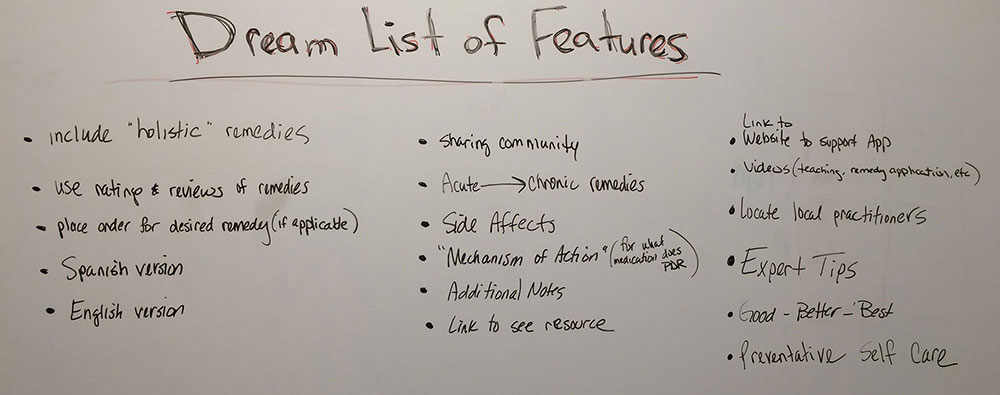 Dream List of Features
• include "holistic" remedies
• use rating & reviews of remedies
• place order for desired remedy (if applicable)
• Spanish version
• English version
• sharing community
• Acute → chronic remedies
• Side Affects
• "Mechanism of Action" (for what
medication does
PDR)
• Additional Notes
• Link to see resource
Link to
• Website to support App
• Videos (teaching, remedy application, etc)
• Locate local practitioners
• Expert Tips
• Good - Better - Best
• Preventative Self Care